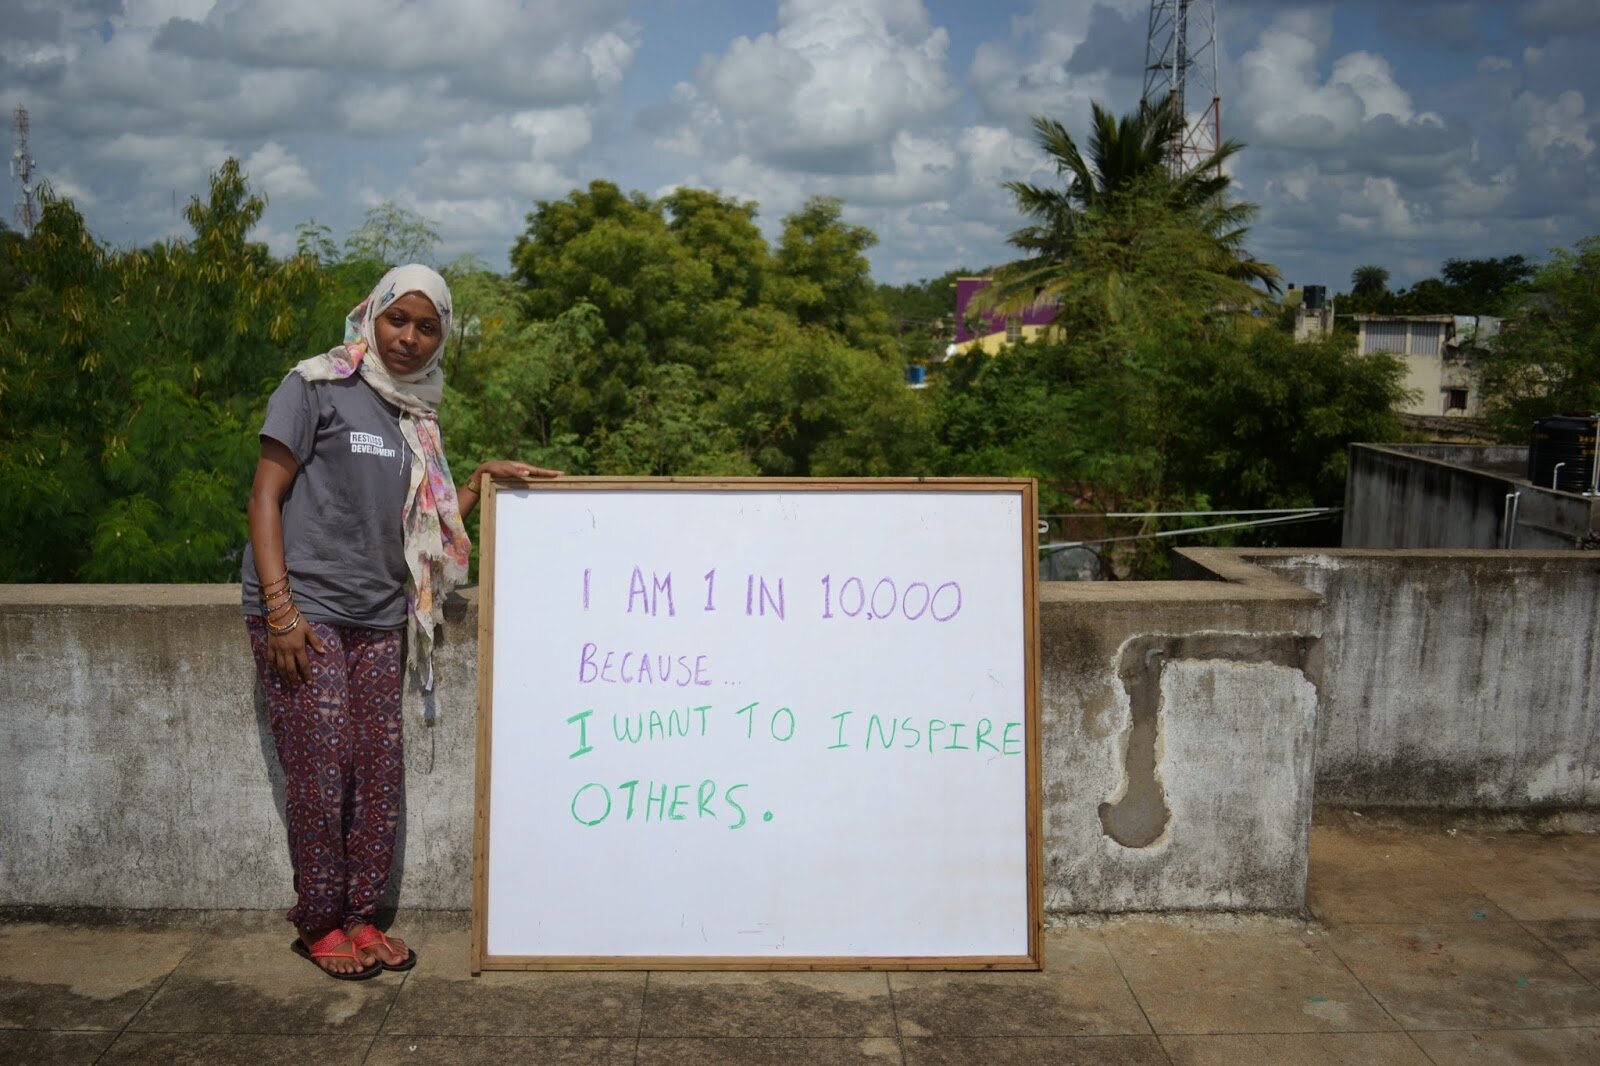 RESTLESS
DEVELOPMENT
I AM 1 IN 10,000
BECAUSE...
I WANT TO INSPIRE
OTHERS.